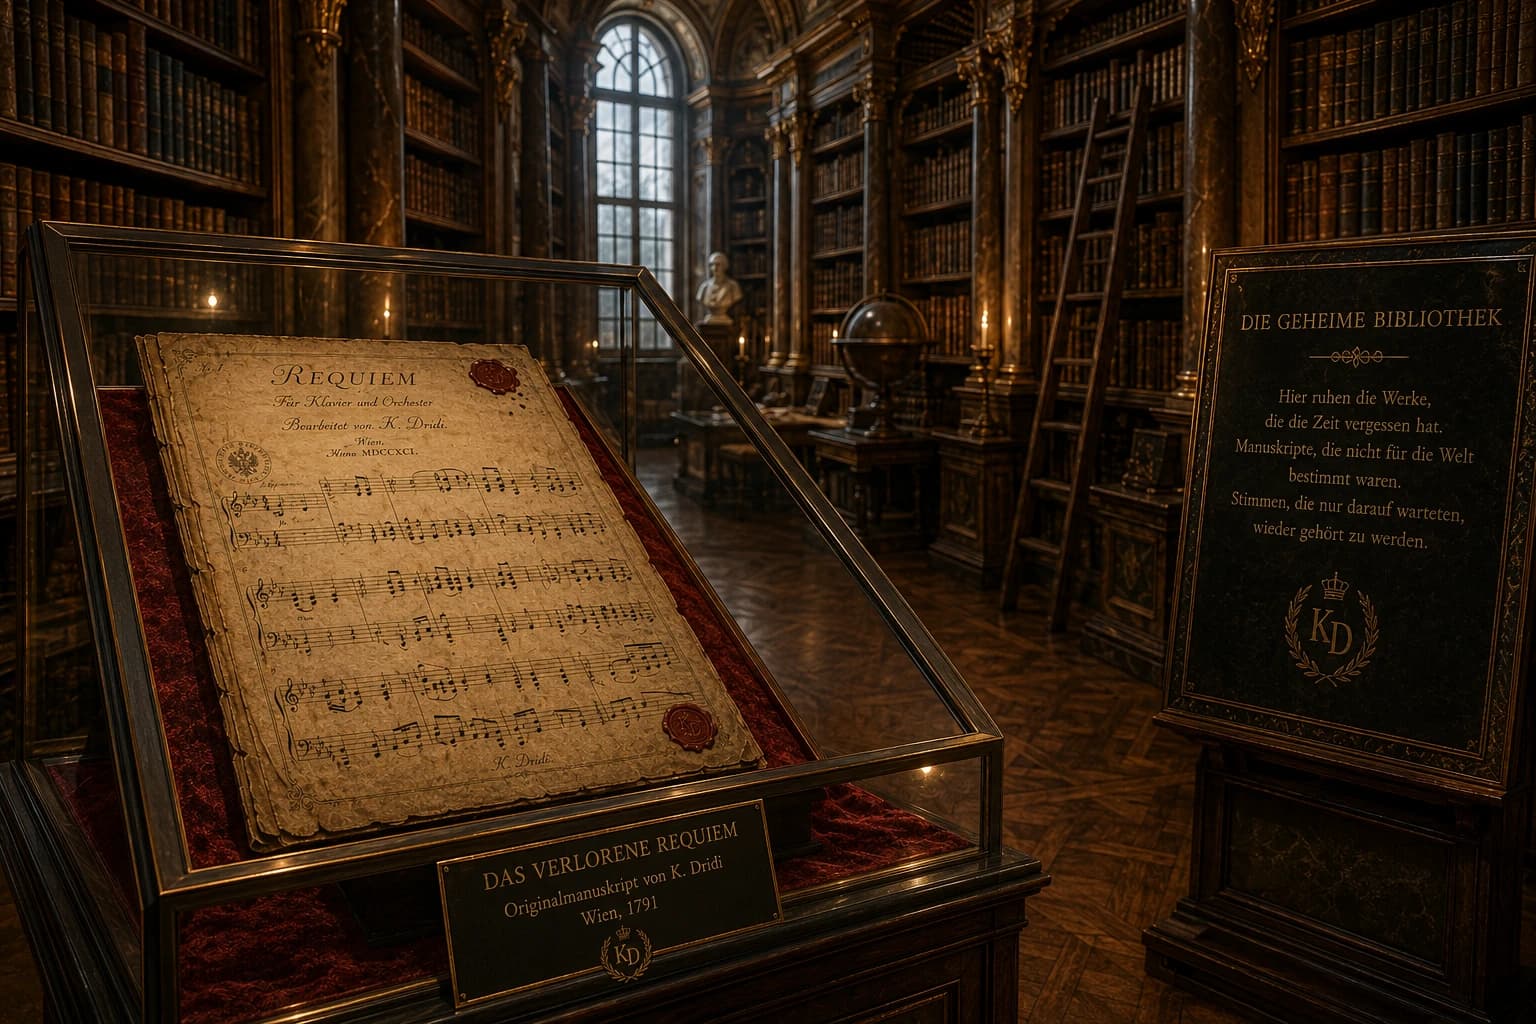 REQUIEM
Für Klavier und Orchester
Bearbeitet von K. Dridi.
Wien.
MDCCXCI.
K. Dridi.
DAS VERLORENE REQUIEM
Originalmanuskript von K. Dridi
Wien, 1791
KD
DIE GEHEIME BIBLIOTHEK
Hier ruhen die Werke,
die die Zeit vergessen hat.
Manuskripte, die nicht für die Welt
bestimmt waren.
Stimmen, die nur darauf warteten,
wieder gehört zu werden.
KD